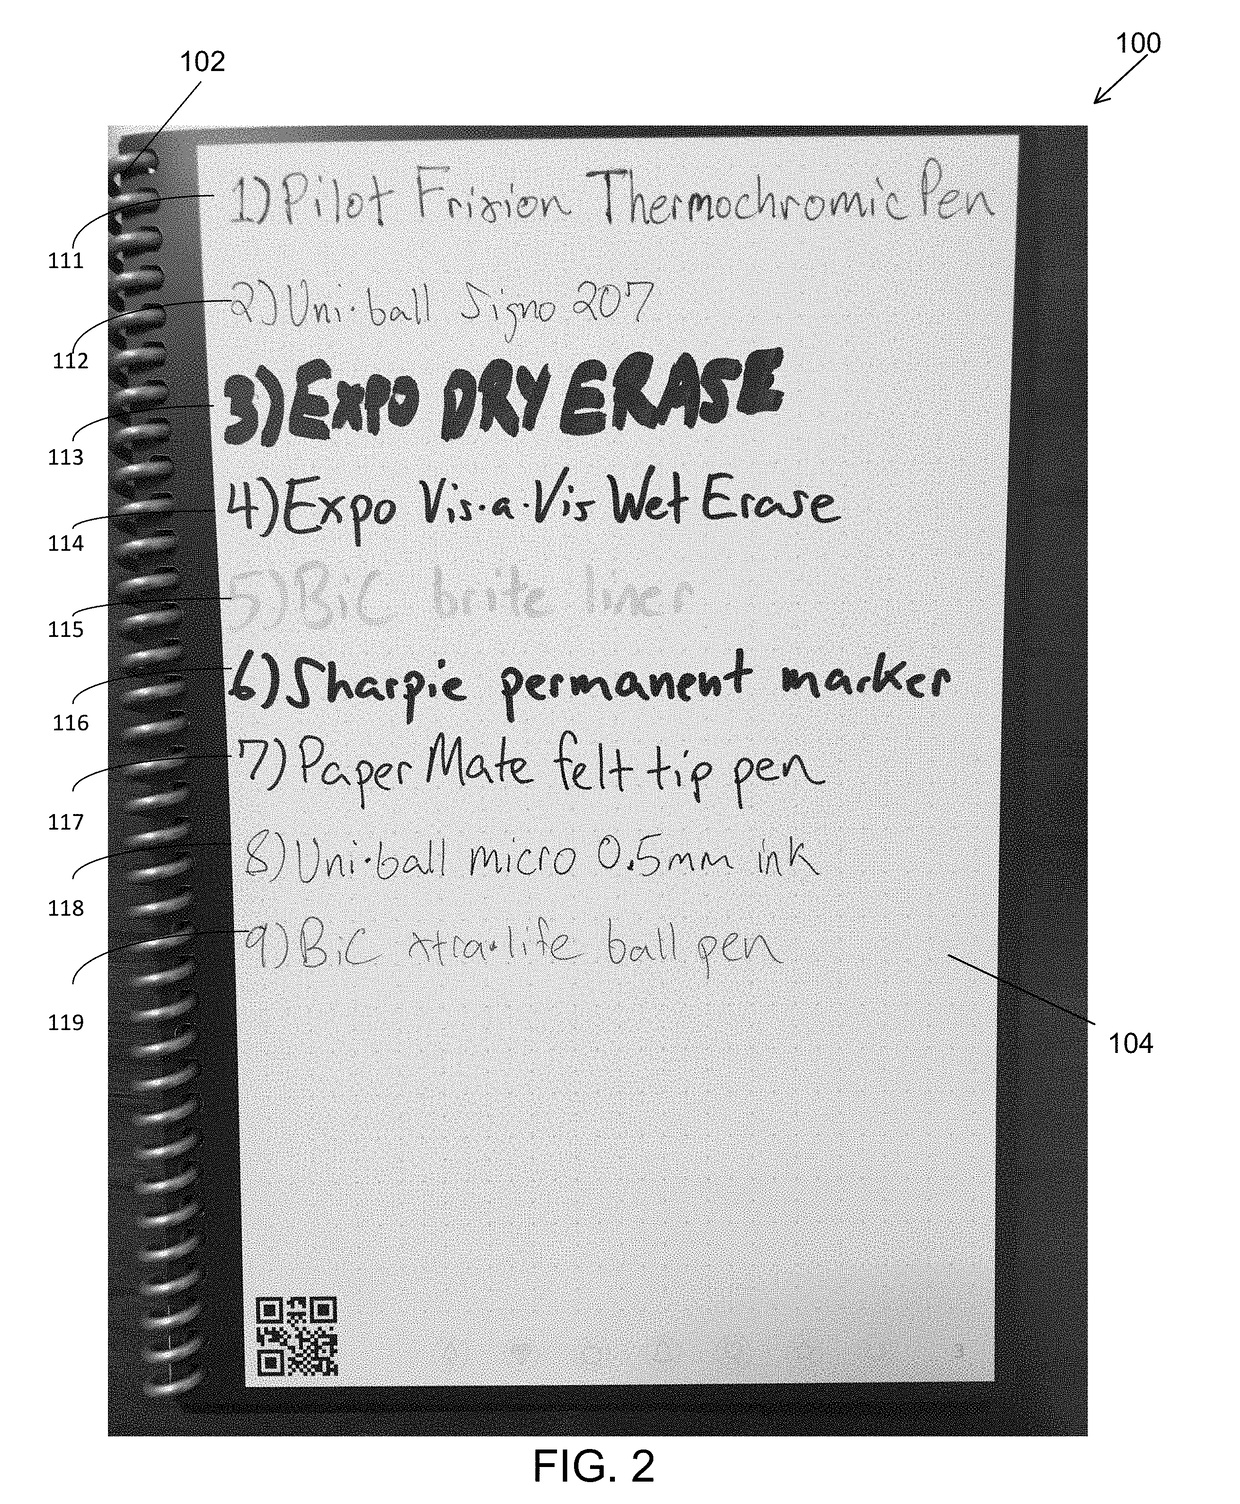 102
100
1) Pilot Frixion Thermochromic Pen
111
2) Uni-ball Signo 207
112
3) Expo DRY ERASE
113
4) Expo Vis-a-Vis Wet Erase
114
5) BiC brite liner
115
6) Sharpie permanent marker
116
7) Paper Mate felt tip pen
117
8) Uni-ball micro 0.5mm ink
118
9) BiC xtra-life ball pen
119
104
3
FIG. 2